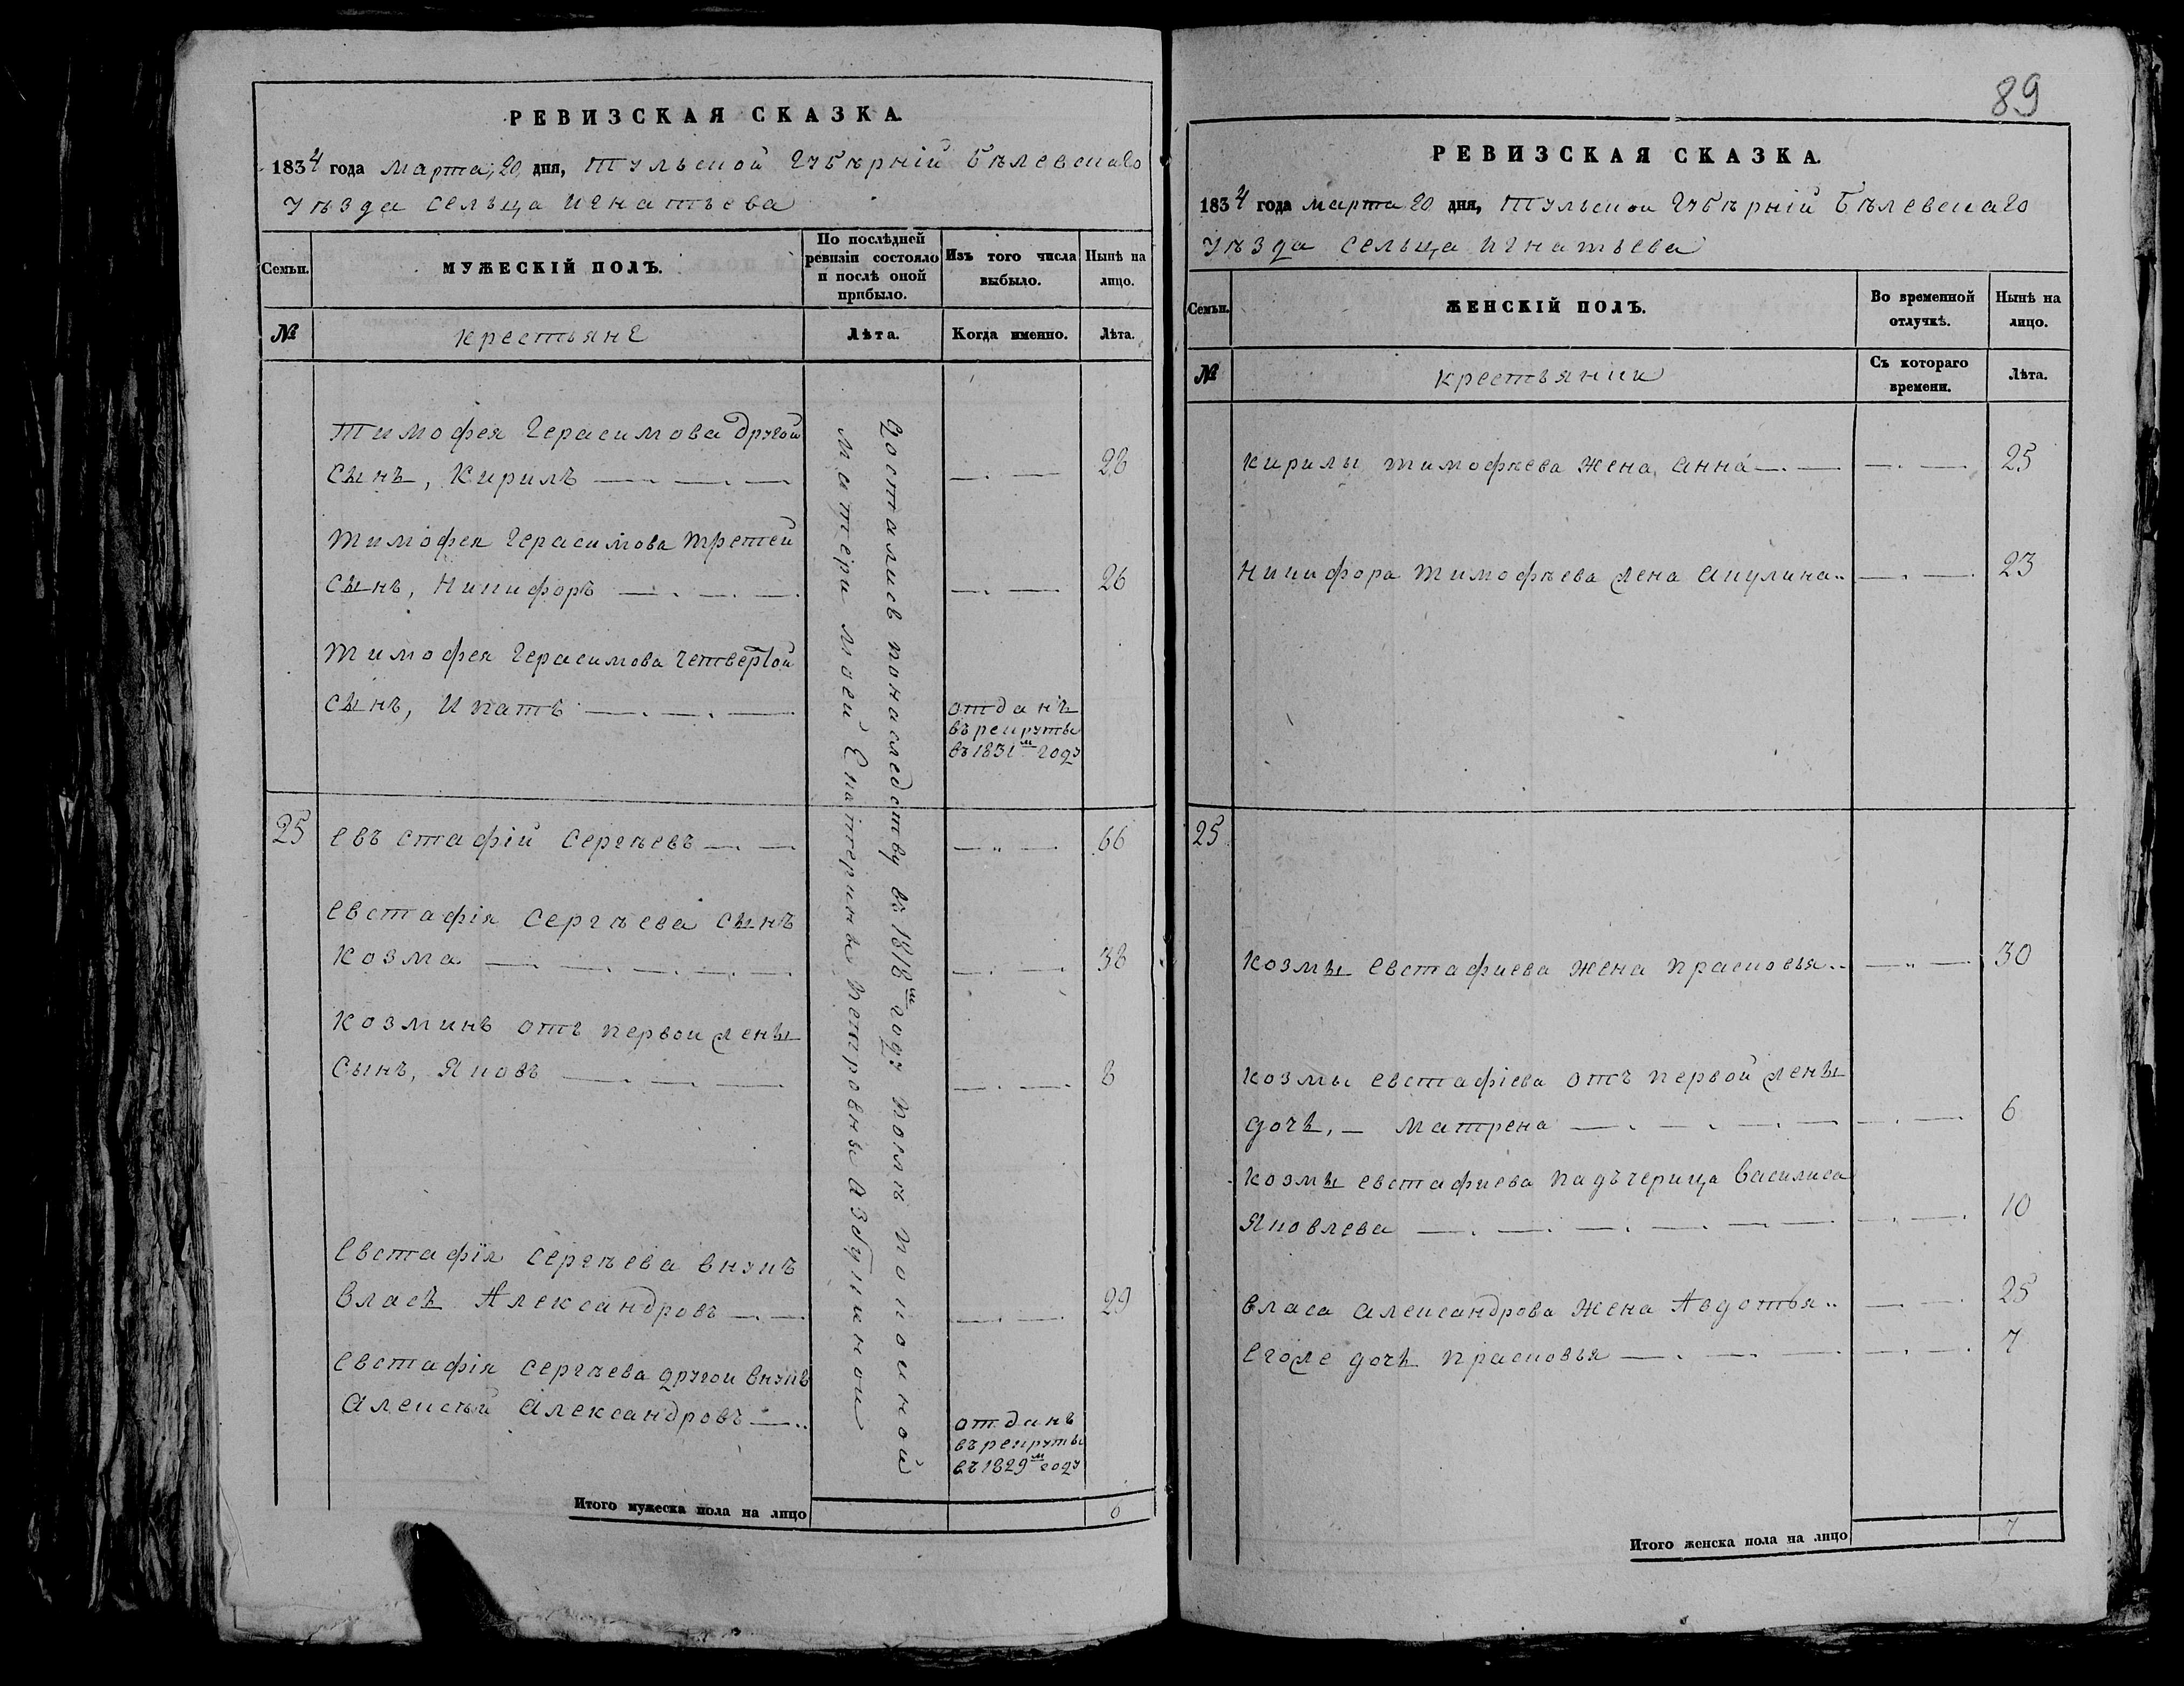 РЕВИЗСКАЯ СКАЗКА.
1834 года марта, 20, дня, Тульской губѣрній Бѣлевскаго
уѣзда сельца Игнатьева
Семьи.
МУЖЕСКІЙ ПОЛЪ.
По послѣдней ревизіи состояло и послѣ оной прибыло.
Изъ того числа выбыло.
Нынѣ на лицо.
№
крестьяне
Лѣта.
Когда именно.
Лѣта.
Тимофея Герасимова другой
сынъ, Кирилъ
28
Тимофея Герасимова третей
сынъ, Никифоръ
26
Тимофея Герасимова четвертой
сынъ, Ипатъ
отданъ
въ рекруты
въ 1831м году
25
Евъстафій Сергѣевъ
66
Евстафія Сергѣева сынъ
Козма
38
Козминъ отъ первой жены
сынъ, Яковъ
8
Евстафія Сергѣева внукъ
Власъ Александровъ
29
Евстафія Сергѣева другой внукъ
Алексѣй Александровъ
отданъ
въ рекруты
въ 1829м году
Достались по наследству въ 1818м году послѣ покойной
матери моей Екатерины Петровны Азбукиной
Итого мужеска пола на лицо
6
89
РЕВИЗСКАЯ СКАЗКА.
1834 года марта 20 дня, Тульской губѣрній Бѣлевскаго
уѣзда сельца Игнатьева
Семьи.
ЖЕНСКІЙ ПОЛЪ.
Во временной отлучкѣ.
Нынѣ на лицо.
№
крестьянки
Съ котораго времени.
Лѣта.
Кирилы Тимофѣева жена Анна
25
Никифора Тимофѣева жена Акулина
23
25
Козмы Евстафиева жена Прасковья
30
Козмы Евстафіева отъ первой жены
дочь, Матрена
6
Козмы Евстафиева падъчерица Василиса
Яковлева
10
Власа Александрова жена Авдотья
25
Егоже дочь Прасковья
7
Итого женска пола на лицо
7